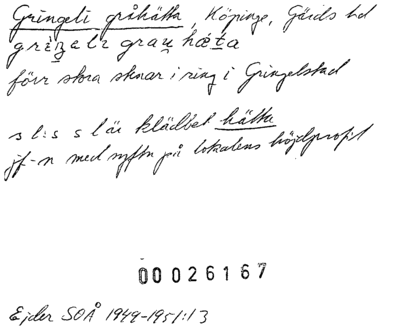 Gringeli gråhätta, Köpinge, Gärds hd
griŋelı grau̯ hæta
förr stora stenar i ring i Gringelstad
s l:s s l är klädbet hätta
jf-n med syftn på lokalens höjdprofil
00026167
Ejder SOÅ 1949-1951:13